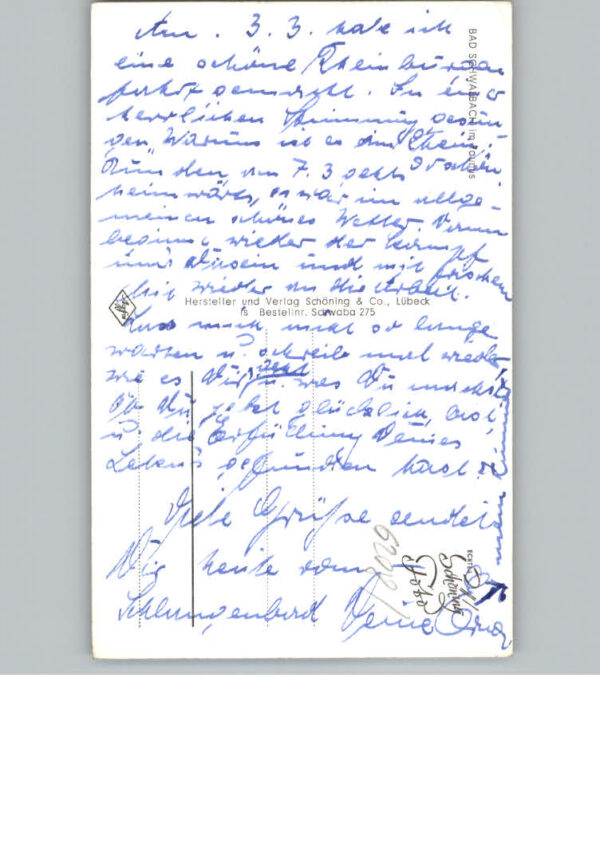 Am . 3. 3. habe ich
eine schöne Rheinburgen
fahrt gemacht. In einer
herrlichen Stimmung gesun-
gen „Warum ist es am Rhein
Nun den am 7. 3 geht schön
heimwärts, es war im allge-
meinen schönes Wetter. Dann
beginnt wieder der Kampf
ums Dasein und mit frischem
Mut wieder an die Arbeit.
Hersteller und Verlag Schöning & Co., Lübeck
Bestellnr. Schwaba 275
Lass mich nicht so lange
warten u. schreib mal wieder,
wie es Dir geht u. was Du machst
Ob Du jetzt glücklich bist
u. die Erfüllung Deines
Lebens gefunden hast?
Viele Grüße sendet
Dir heute vom
Schlangenbad Deine
BAD SCHWALBACH im Taunus
Schöning
Foto
6208/